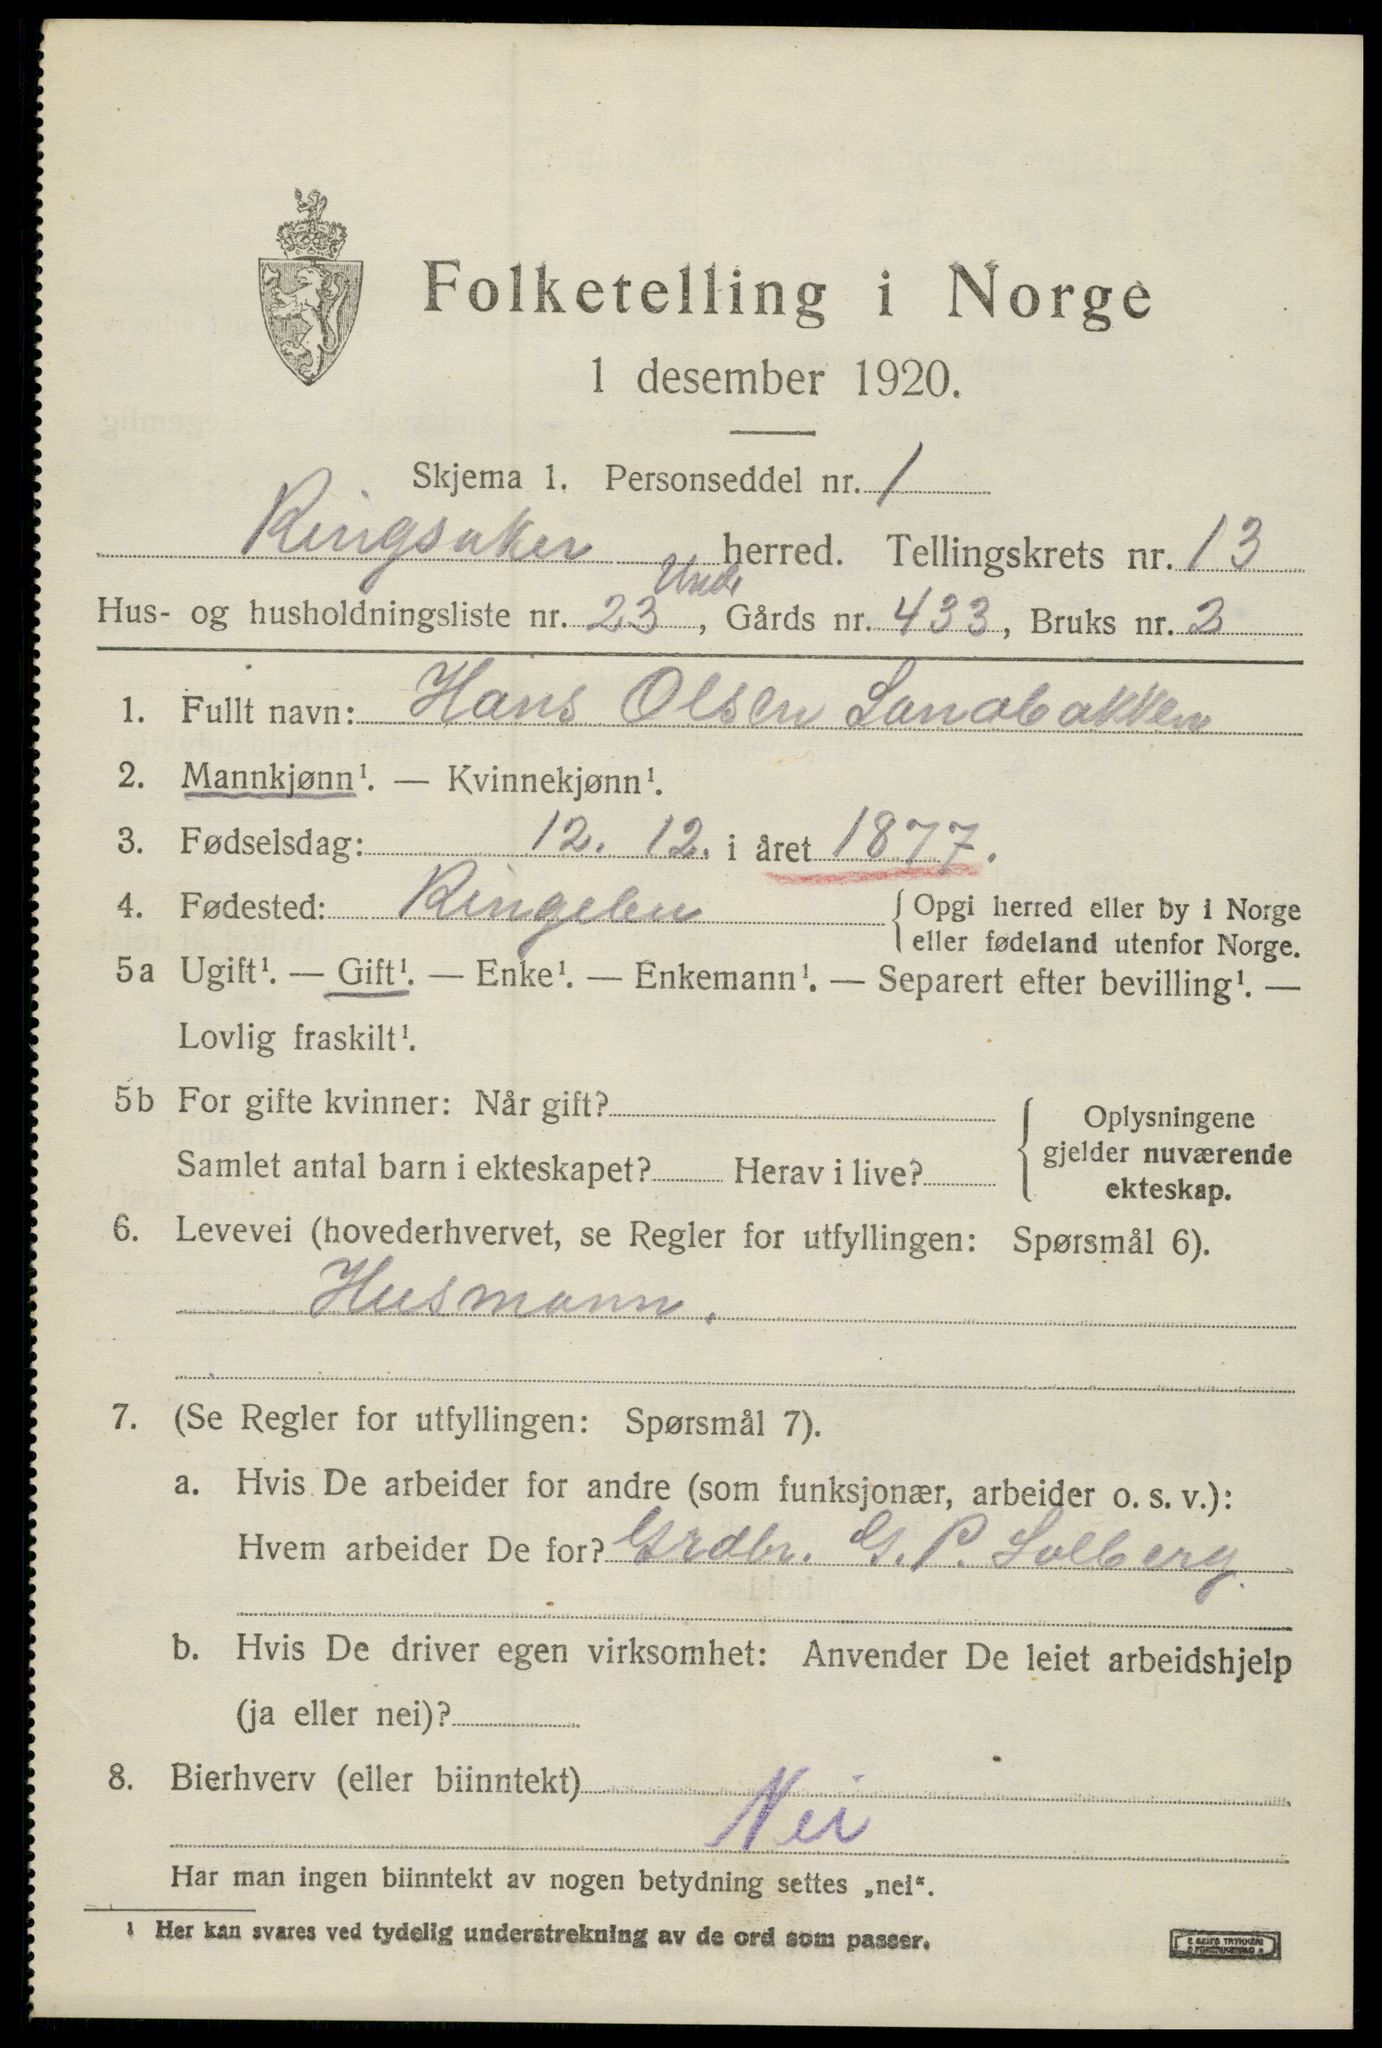 Folketelling i Norge
1 desember 1920.
Skjema 1. Personseddel nr. 1
Ringsaker herred. Tellingskrets nr. 13
Und
Hus- og husholdningsliste nr. 23, Gårds nr. 433, Bruks nr. 2
1. Fullt navn: Hans Olsen Sandbakken
2. Mannkjønn¹. — Kvinnekjønn¹.
3. Fødselsdag: 12. 12. i året 1877.
4. Fødested: Ringebu { Opgi herred eller by i Norge
eller fødeland utenfor Norge.
5a Ugift¹. — Gift¹. — Enke¹. — Enkemann¹. — Separert efter bevilling¹. —
Lovlig fraskilt¹.
5b For gifte kvinner: Når gift?
Samlet antal barn i ekteskapet? Herav i live?
Oplysningene
gjelder nuværende
ekteskap.
6. Levevei (hovederhvervet, se Regler for utfyllingen: Spørsmål 6).
Husmann.
7. (Se Regler for utfyllingen: Spørsmål 7).
a. Hvis De arbeider for andre (som funksjonær, arbeider o. s. v.):
Hvem arbeider De for? Grdbr. G. P. Solberg.
b. Hvis De driver egen virksomhet: Anvender De leiet arbeidshjelp
(ja eller nei)?
8. Bierhverv (eller biinntekt)
Nei
Har man ingen biinntekt av nogen betydning settes „nei“.
1 Her kan svares ved tydelig understrekning av de ord som passer.